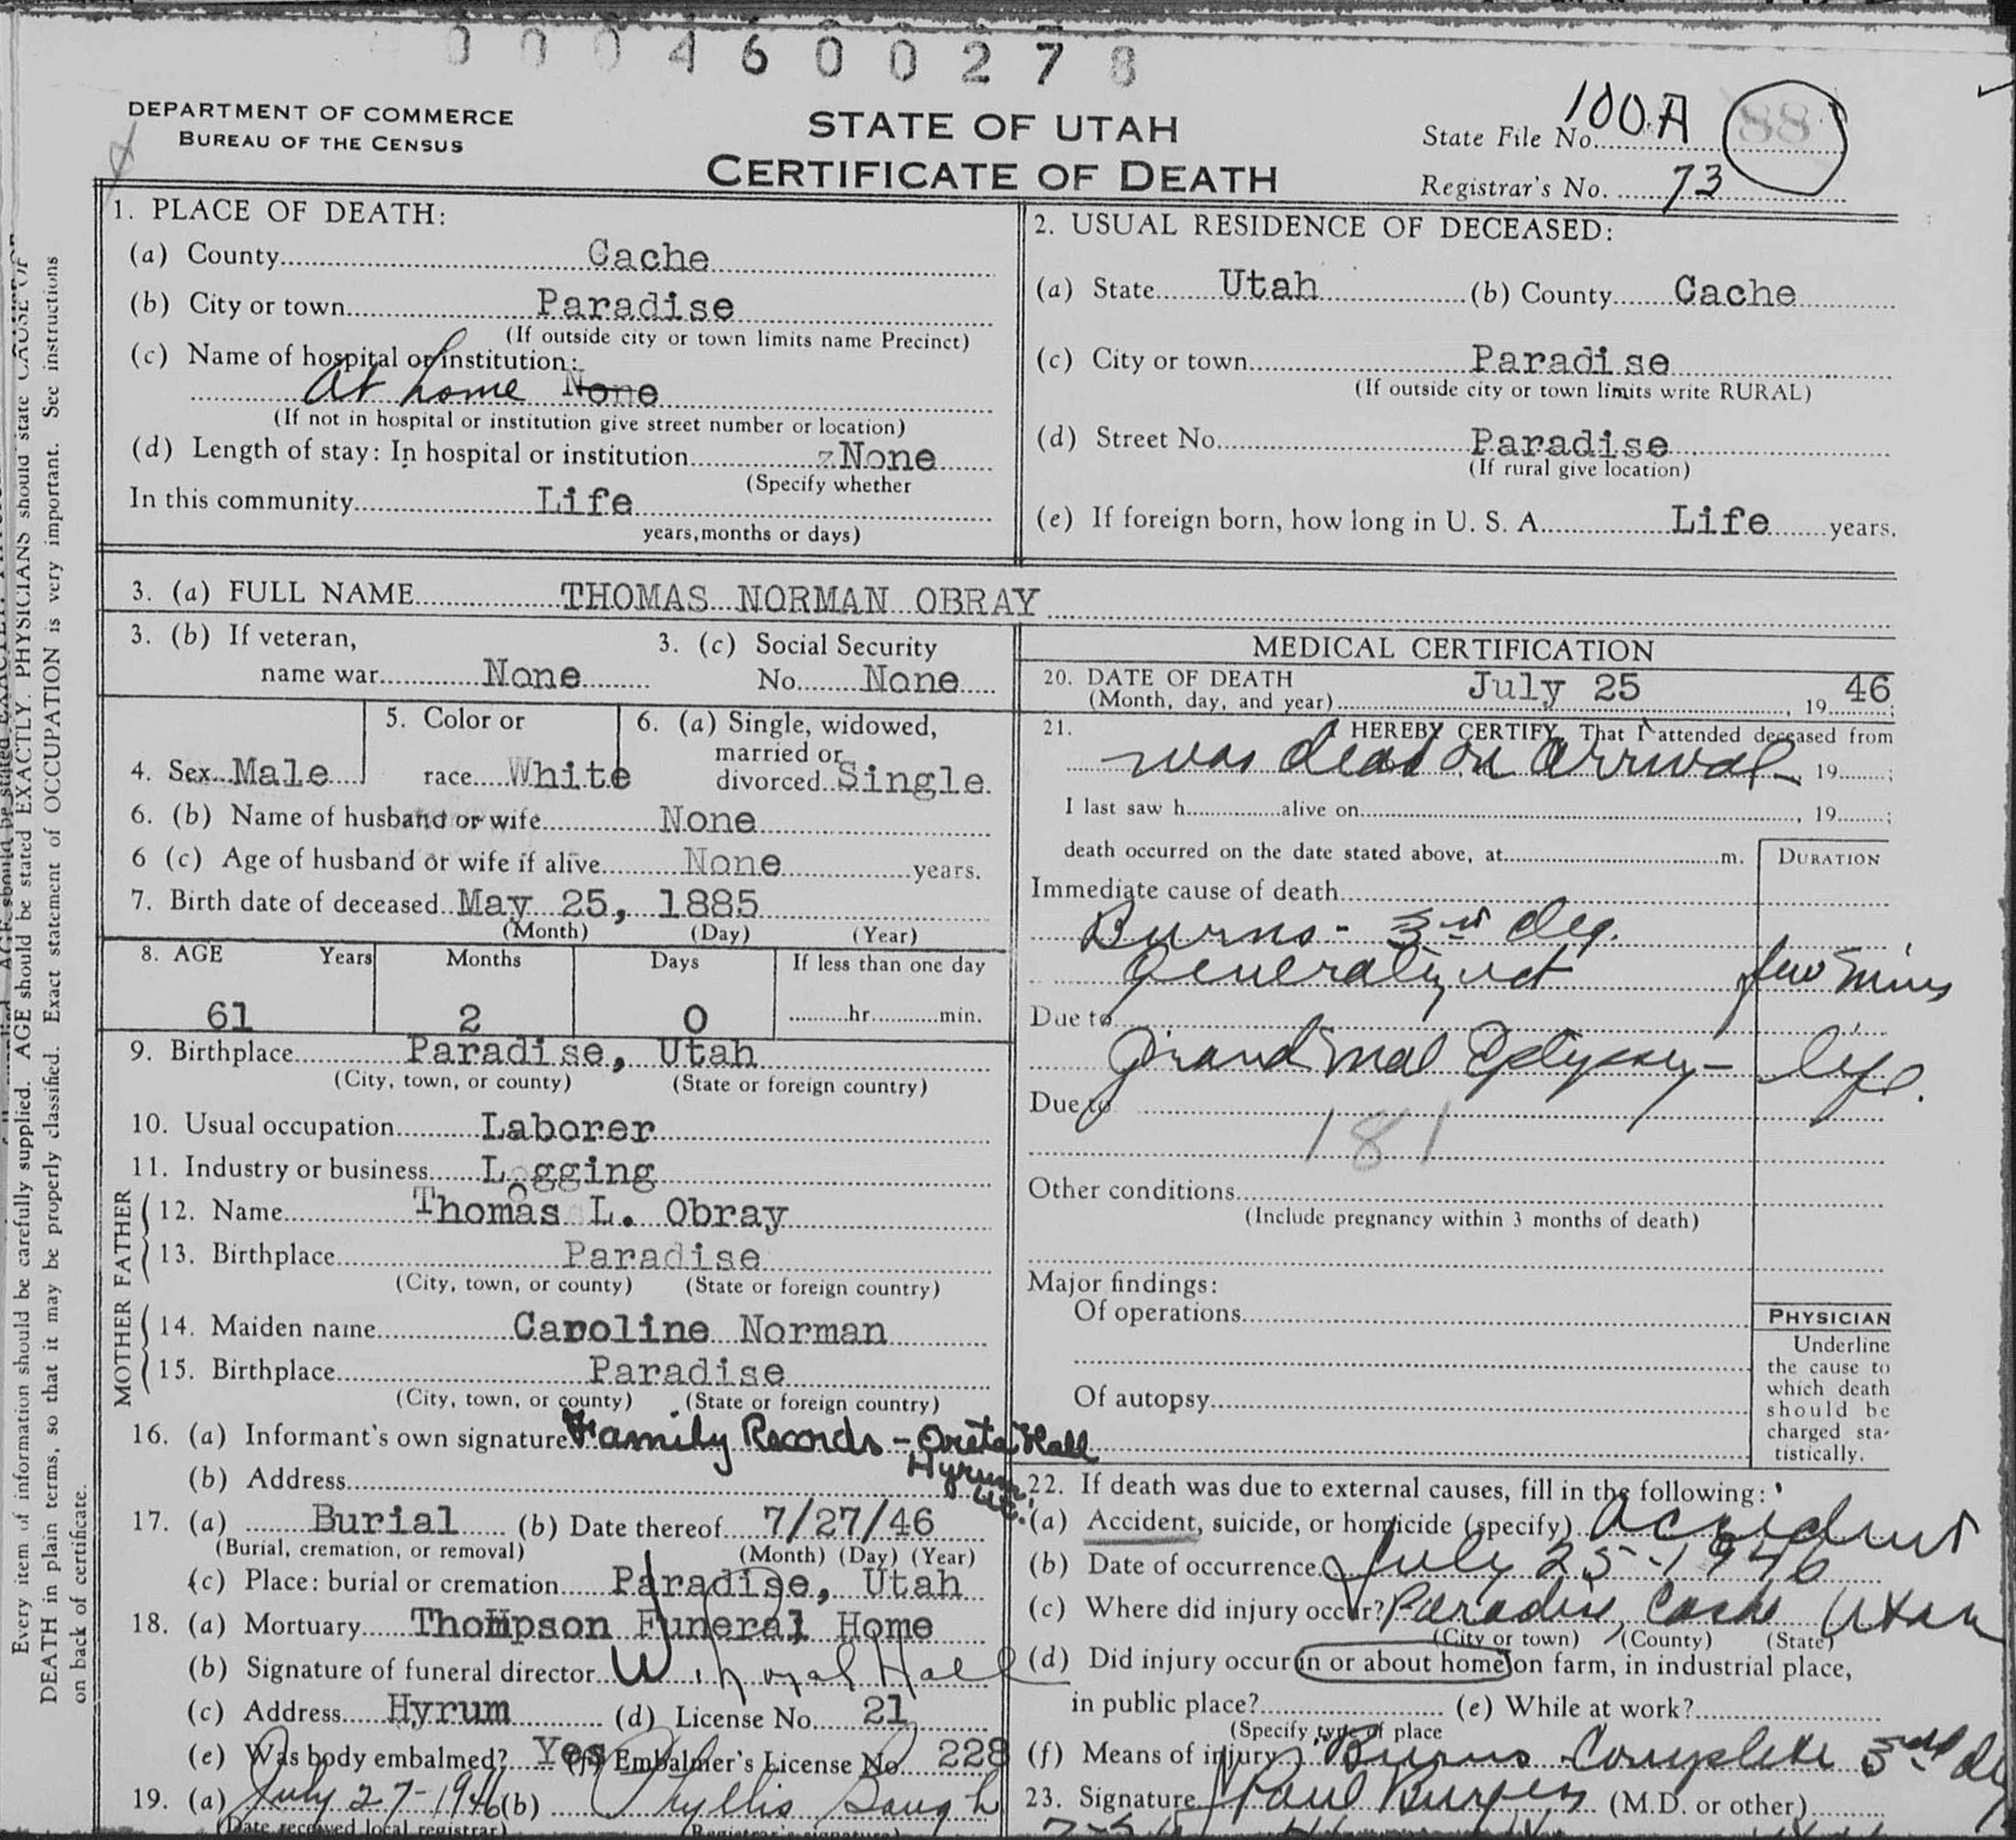 0004600278
DEPARTMENT OF COMMERCE
BUREAU OF THE CENSUS
STATE OF UTAH
CERTIFICATE OF DEATH
State File No. 100 A 88
Registrar's No. 73
1. PLACE OF DEATH:
(a) County Cache
(b) City or town Paradise
(If outside city or town limits name Precinct)
(c) Name of hospital or institution:
at home None
(If not in hospital or institution give street number or location)
(d) Length of stay: In hospital or institution None
(Specify whether
In this community Life
years, months or days)
2. USUAL RESIDENCE OF DECEASED:
(a) State Utah (b) County Cache
(c) City or town Paradise
(If outside city or town limits write RURAL)
(d) Street No. Paradise
(If rural give location)
(e) If foreign born, how long in U. S. A. Life years.
3. (a) FULL NAME THOMAS NORMAN OBRAY
3. (b) If veteran,
name war None
3. (c) Social Security
No. None
4. Sex Male
5. Color or
race White
6. (a) Single, widowed,
married or
divorced Single
6. (b) Name of husband or wife None
6 (c) Age of husband or wife if alive None years.
7. Birth date of deceased May 25, 1885
(Month) (Day) (Year)
8. AGE Years Months Days If less than one day
61 2 0 hr. min.
9. Birthplace Paradise, Utah
(City, town, or county) (State or foreign country)
10. Usual occupation Laborer
11. Industry or business Logging
FATHER
12. Name Thomas L. Obray
13. Birthplace Paradise
(City, town, or county) (State or foreign country)
MOTHER
14. Maiden name Caroline Norman
15. Birthplace Paradise
(City, town, or county) (State or foreign country)
16. (a) Informant's own signature Family Records - Oreta Hall
(b) Address Hyrum Ut.
17. (a) Burial (b) Date thereof 7/27/46
(Burial, cremation, or removal) (Month) (Day) (Year)
(c) Place: burial or cremation Paradise, Utah
18. (a) Mortuary Thompson Funeral Home
(b) Signature of funeral director W. Loyal Hall
(c) Address Hyrum (d) License No. 21
(e) Was body embalmed? Yes (f) Embalmer's License No. 228
19. (a) July 27-1946 (b) Phyllis Baugh
(Date received local registrar) (Registrar's signature)
MEDICAL CERTIFICATION
20. DATE OF DEATH
(Month, day, and year) July 25, 1946;
21. I HEREBY CERTIFY, That I attended deceased from
was dead on arrival, 19 ;
I last saw h alive on , 19 ;
death occurred on the date stated above, at m.
DURATION
Immediate cause of death
Burns - 3rd deg.
Generalized few mins
Due to
Grand Mal Epilepsy - life.
Due to
181
Other conditions
(Include pregnancy within 3 months of death)
Major findings:
Of operations
Of autopsy
PHYSICIAN
Underline
the cause to
which death
should be
charged sta-
tistically.
22. If death was due to external causes, fill in the following:
(a) Accident, suicide, or homicide (specify) Accident
(b) Date of occurrence July 25-1946
(c) Where did injury occur? Paradise Cache Utah
(City or town) (County) (State)
(d) Did injury occur in or about home, on farm, in industrial place,
in public place? (e) While at work?
(Specify type of place
(f) Means of injury Burns Complete 3rd de
23. Signature Paul Burgess (M.D. or other)
Every item of information should be carefully supplied. AGE should be stated EXACTLY. PHYSICIANS should state CAUSE OF
DEATH in plain terms, so that it may be properly classified. Exact statement of OCCUPATION is very important. See instructions
on back of certificate.